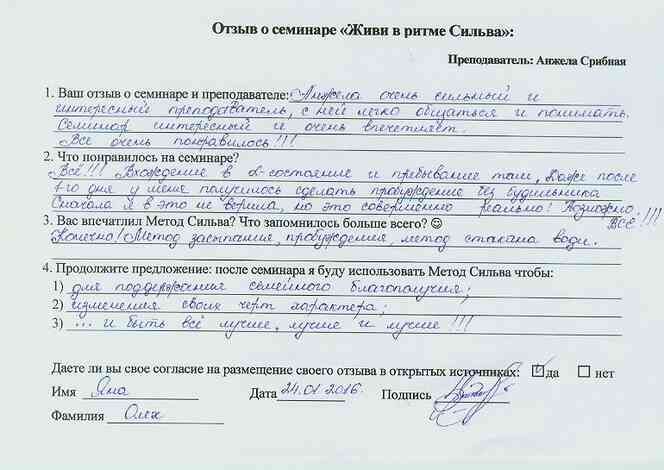 Отзыв о семинаре «Живи в ритме Сильва»:
Преподаватель: Анжела Срибная
1. Ваш отзыв о семинаре и преподавателе: Анжела очень сильный и
интересный преподаватель, с ней легко общаться и понимать.
Семинар интересный и очень впечатляет.
Все очень понравилось!!!
2. Что понравилось на семинаре?
Всё!!! Вхождение в α-состояние и пребывание там, даже после
1-го дня у меня получилось сделать пробуждение без будильника
Сначала я в это не верила, но это совершенно реально! Возможно
ВСЁ!!!
3. Вас впечатлил Метод Сильва? Что запомнилось больше всего? ☺
Конечно! Метод засыпания, пробуждения, метод стакана воды.
4. Продолжите предложение: после семинара я буду использовать Метод Сильва чтобы:
1) для поддержания семейного благополучия;
2) изменения своих черт характера;
3) ... и быть всё лучше, лучше и лучше!!!
Даете ли вы свое согласие на размещение своего отзыва в открытых источниках: ☑ да ☐ нет
Имя Яна Дата 24.01.2016. Подпись
Фамилия Олех